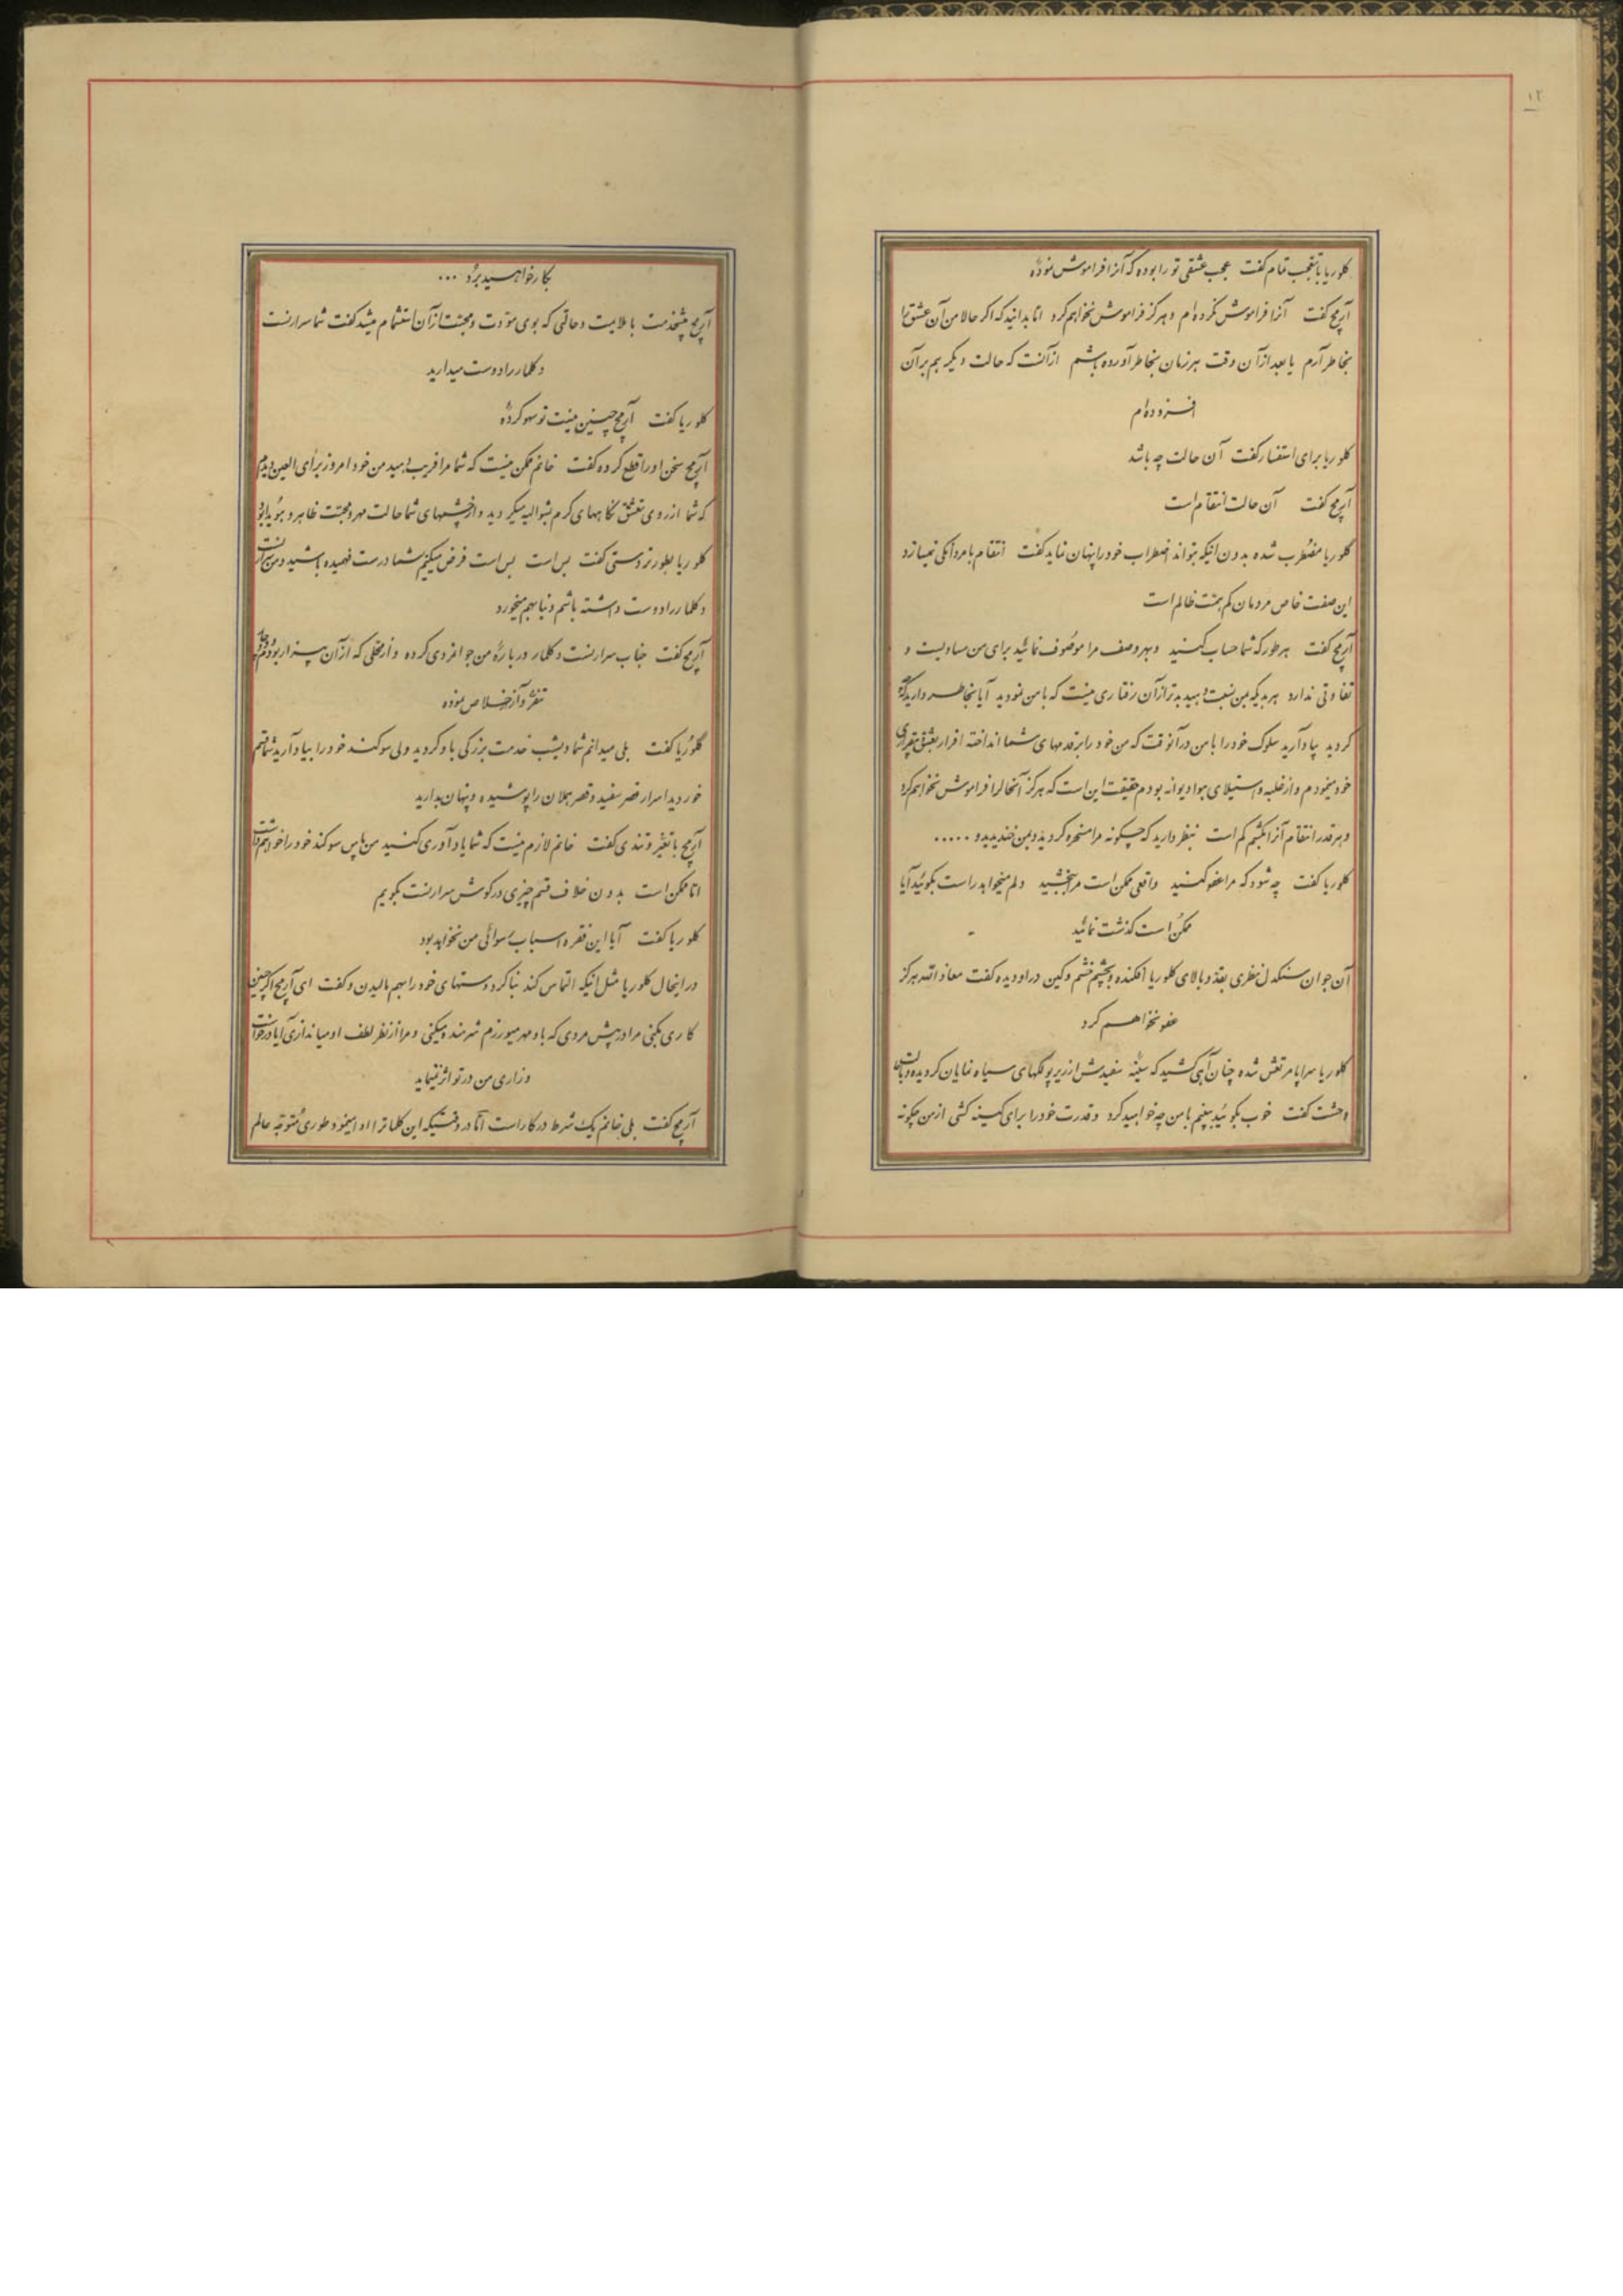 ۱۲
کلوریا با تعجب تمام گفت عجب عشقی تو را بوده که آنرا فراموش نموده
آرمج گفت آنرا فراموش نکرده‌ام و هرگز فراموش نخواهم کرد اما بدانید که اگر حالا من آن عشق را
بخاطر آرم یا بعد از آن وقت هر زمان بخاطر آورده باشم از آنست که حالت دیگر هم بر آن
افزوده‌ام
کلوریا برای استفسار گفت آن حالت چه باشد
آرمج گفت آن حالت انتقام است
گلوریا مضطرب شده بدون اینکه بتواند اضطراب خود را پنهان نماید گفت انتقام با مردانگی نمیسازد
این صفت خاص مردمان کم همت ظالم است
آرمج گفت هر طور که شما حساب کنید و بهر وصف مرا موصوف نمائید برای من مساویست و
تفاوتی ندارد هر بدیکه بمن نسبت دهید بدتر از آن رفتاری نیست که با من نمودید آیا بخاطر دارید که
کردید بیاد آرید سلوک خود را با من در آنوقت که من خود را بر قدمهای شما انداخته اقرار بعشق و بیقراری
خود مینمودم و از غلبه و استیلای هوا دیوانه بودم حقیقت این است که هرگز آنحال را فراموش نخواهم کرد
و هر قدر انتقام آنرا بکشم کم است بنظر دارید که چگونه مرا مسخره کردید و بمن خندیدید و .....
کلوریا گفت چه شود که مرا عفو کنید واقعی ممکن است مرا ببخشید دلم میخواهد راست بگوئید آیا
ممکن است گذشت نمائید
آن جوان سنگدل نظری بقد و بالای کلوریا افکنده و بچشم خشم و کین در او دیده گفت معاذ الله هرگز
عفو نخواهم کرد
کلوریا سراپا مرتعش شده چنان آهی کشید که سینه سفیدش از زیر پولکهای سیاه نمایان گردیده و با
وحشت گفت خوب بگوئید ببینم با من چه خواهید کرد و قدرت خود را برای کینه کشی از من چگونه
بکار خواهید برد ...
آرمج پیشخدمت با ملایمت و حالتی که بوی مودت و محبت از آن استشمام میشد گفت شما سرارنست
دکلمار را دوست میدارید
کلوریا گفت آرمج چنین نیست تو سهو کرده
آرمج سخن او را قطع کرده گفت خانم ممکن نیست که شما مرا فریب دهید من خود امروز برأی العین دیدم
که شما از روی تعشق نگاههای گرم بشوالیه میکردید و از چشمهای شما حالت مهر و محبت ظاهر و هویدا بود
کلوریا بطور تردستی گفت بس است بس است فرض میکنیم شما درست فهمیده باشید و من سرارنست
دکلمار را دوست داشته باشم دنیا بهم میخورد
آرمج گفت جناب سرارنست دکلمار در باره من جوانمردی کرده و از محلی که از آن بیزار بودم و
تنفر و آنرا خلاص نموده
گلوریا گفت بلی میدانم شما دیشب خدمت بزرگی باو کردید ولی سوگند خود را بیاد آرید شما قسم
خوردید اسرار قصر سفید و قصر هملان را پوشیده و پنهان بدارید
آرمج با تغیر و تندی گفت خانم لازم نیست که شما یادآوری کنید من پاس سوگند خود را خواهم داشت
اما ممکن است بدون خلاف قسم چیزی در گوش سرارنست بگویم
کلوریا گفت آیا این فقره اسباب رسوائی من نخواهد بود
در اینحال کلوریا مثل اینکه التماس کند بنا کرد دستهای خود را بهم مالیدن و گفت ای آرمج اگر چنین
کاری بکنی مرا در پیش مردی که باو مهر میورزم شرمنده میکنی و مرا از نظر لطف او میاندازی آیا درخواست
و زاری من در تو اثر نمینماید
آرمج گفت بلی خانم یک شرط در کار است اما در وقتیکه این کلمات را ادا مینمود طوری متوجه عالم